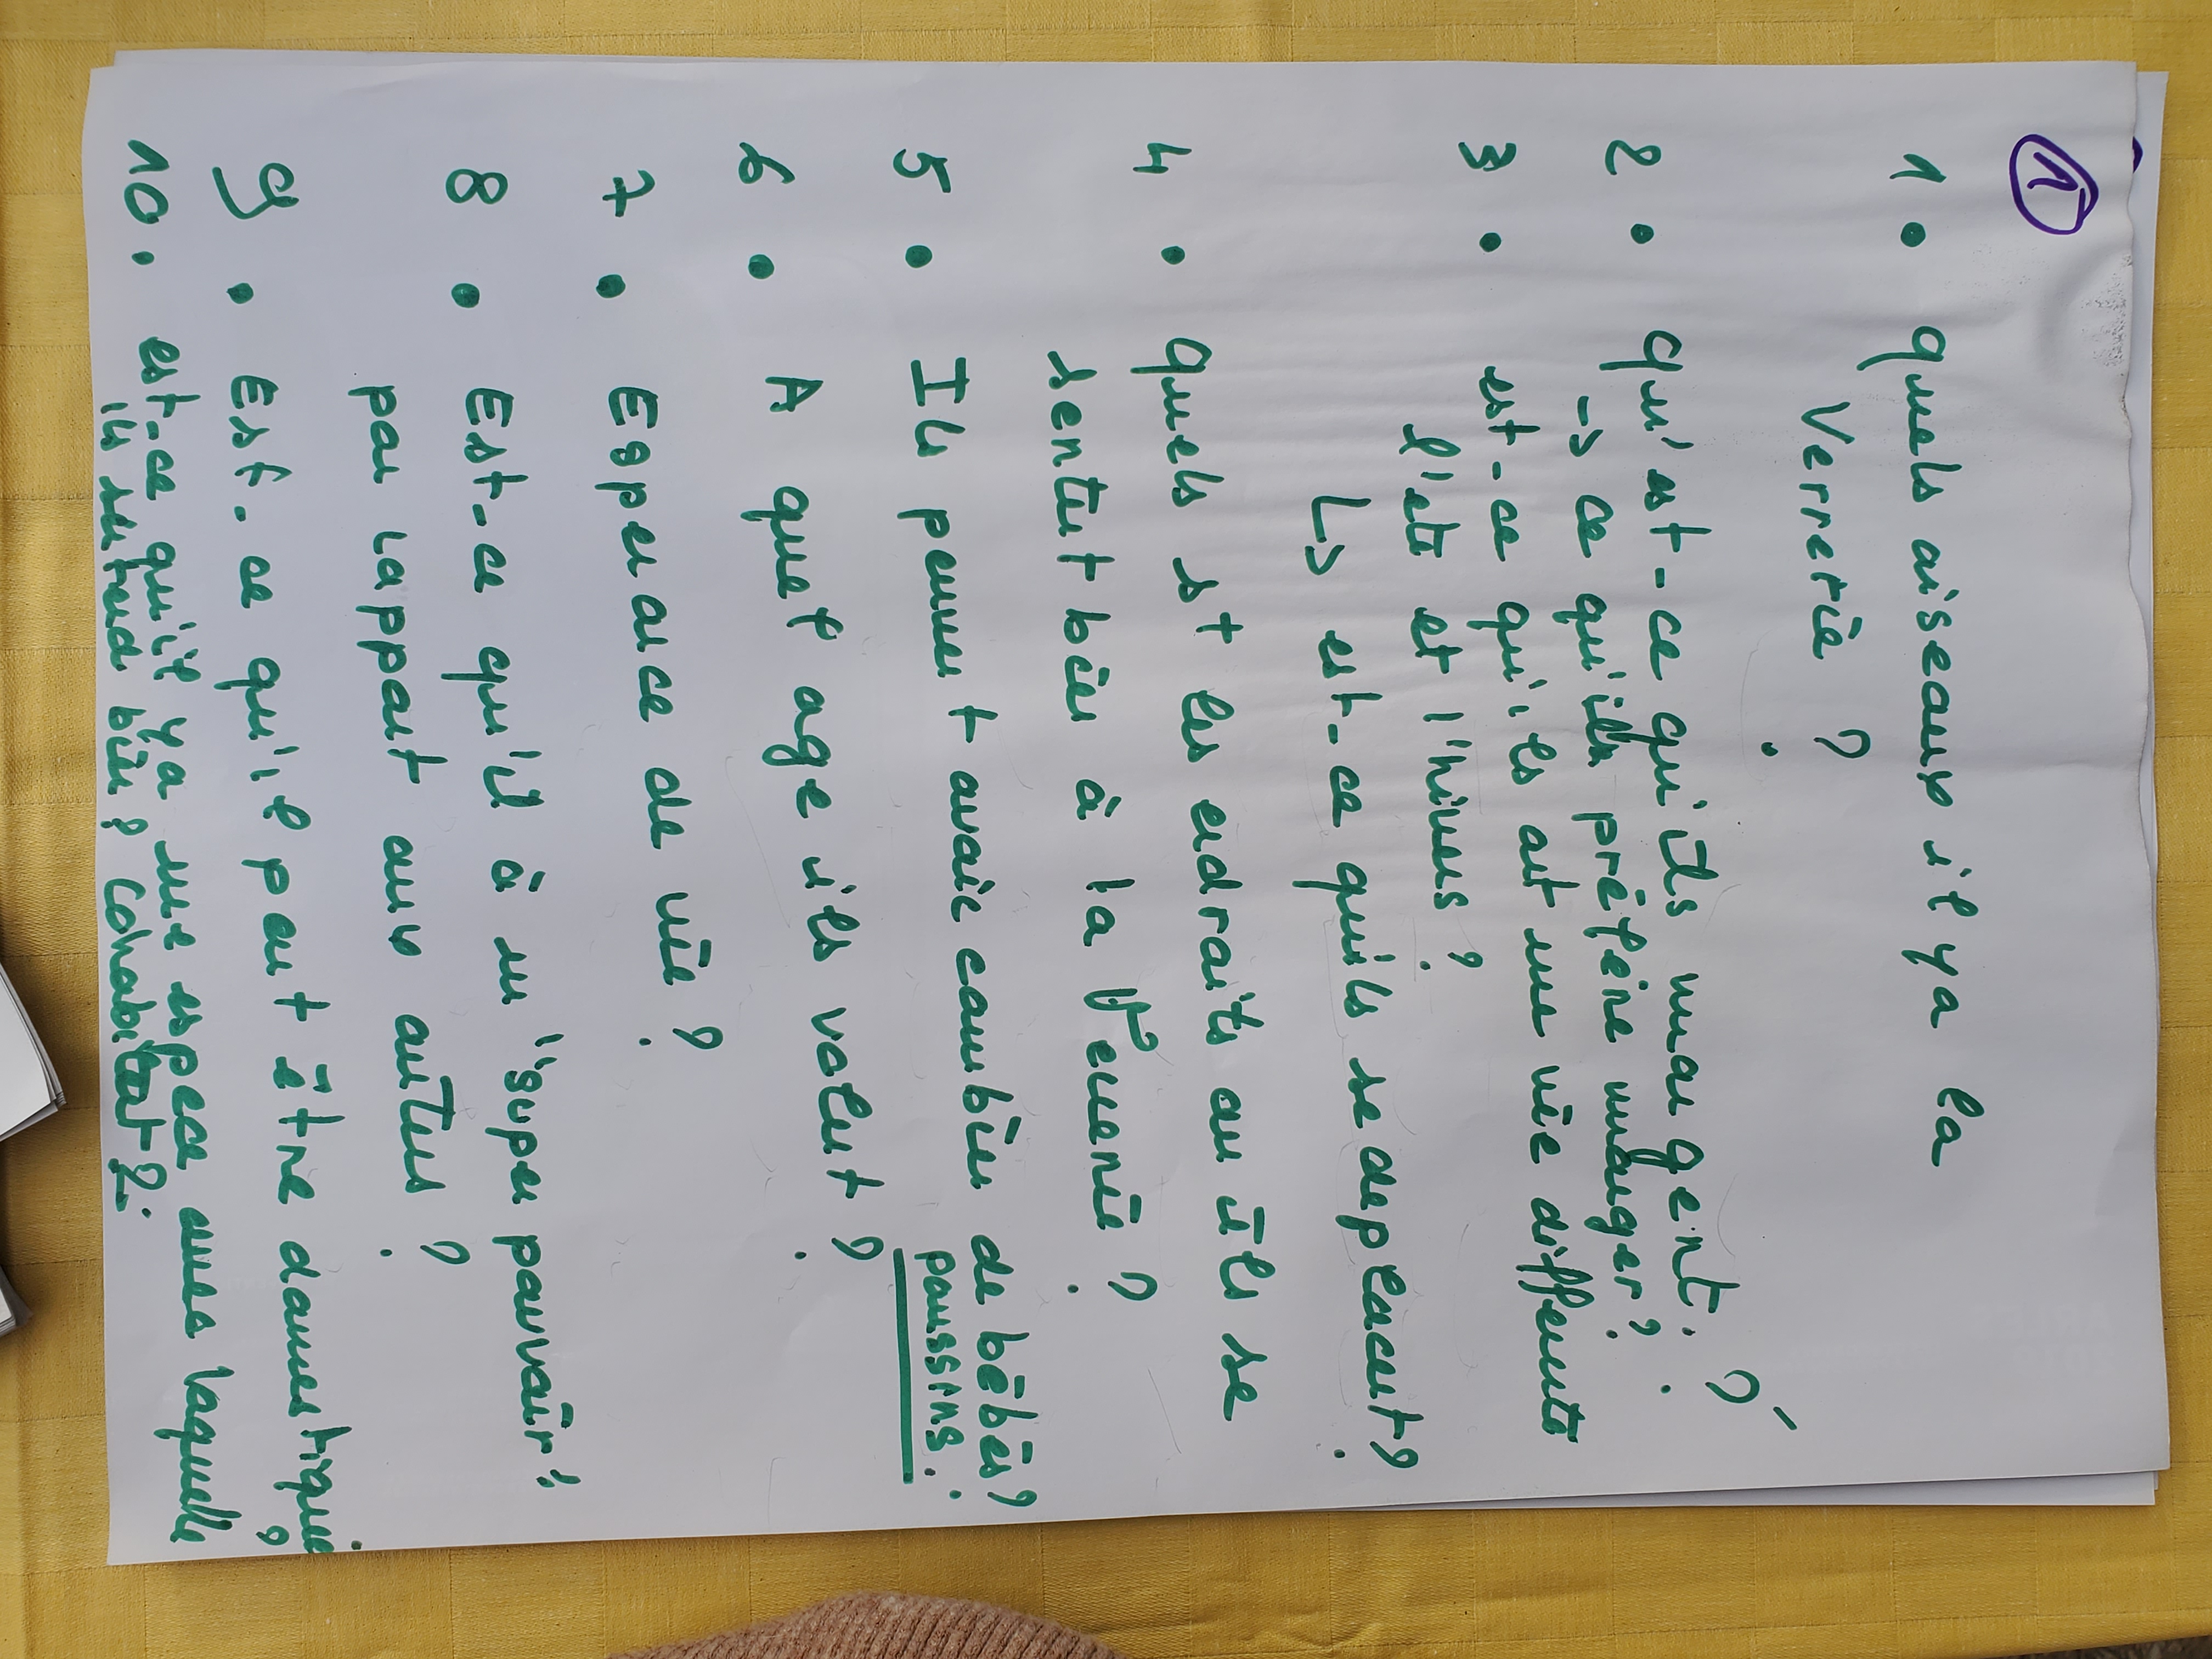 1
1 • quels oiseaux il y a la
Verrerie ?
2 • qu'est-ce qu'ils mangent. ?
-> ce qu'ils préfère manger ?
3 • est-ce qu'ils ont une vie differents
l'ete et l'hiver ?
↳ est-ce quils se deplacent ?
4 • quels st les endroits ou ils se
sentent bien à la Vrerie ?
5 • Ils peuve t avoir combien de bébés ?
poussins.
6 • A quel age ils volent ?
7 • Esperance de vie ?
8 • Est-ce qu'il à un "super pouvoir"
par rapport aux autres ?
9 • Est-ce qu'il peut être domestiqué ?
10. est-ce qu'il y a une espece avec laquelle
ils s'entend bien ? Cohabitat ?.